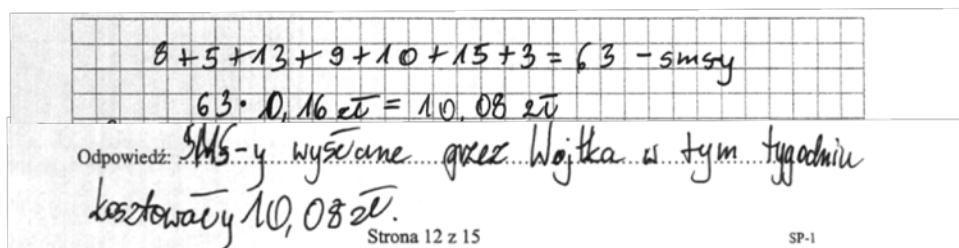 8+5+13+9+10+15+3=63 - smsy
63·0,16 zł = 10,08 zł
Odpowiedź: SMS-y wysłane przez Wojtka w tym tygodniu
kosztowały 10,08 zł.
Strona 12 z 15 SP-1